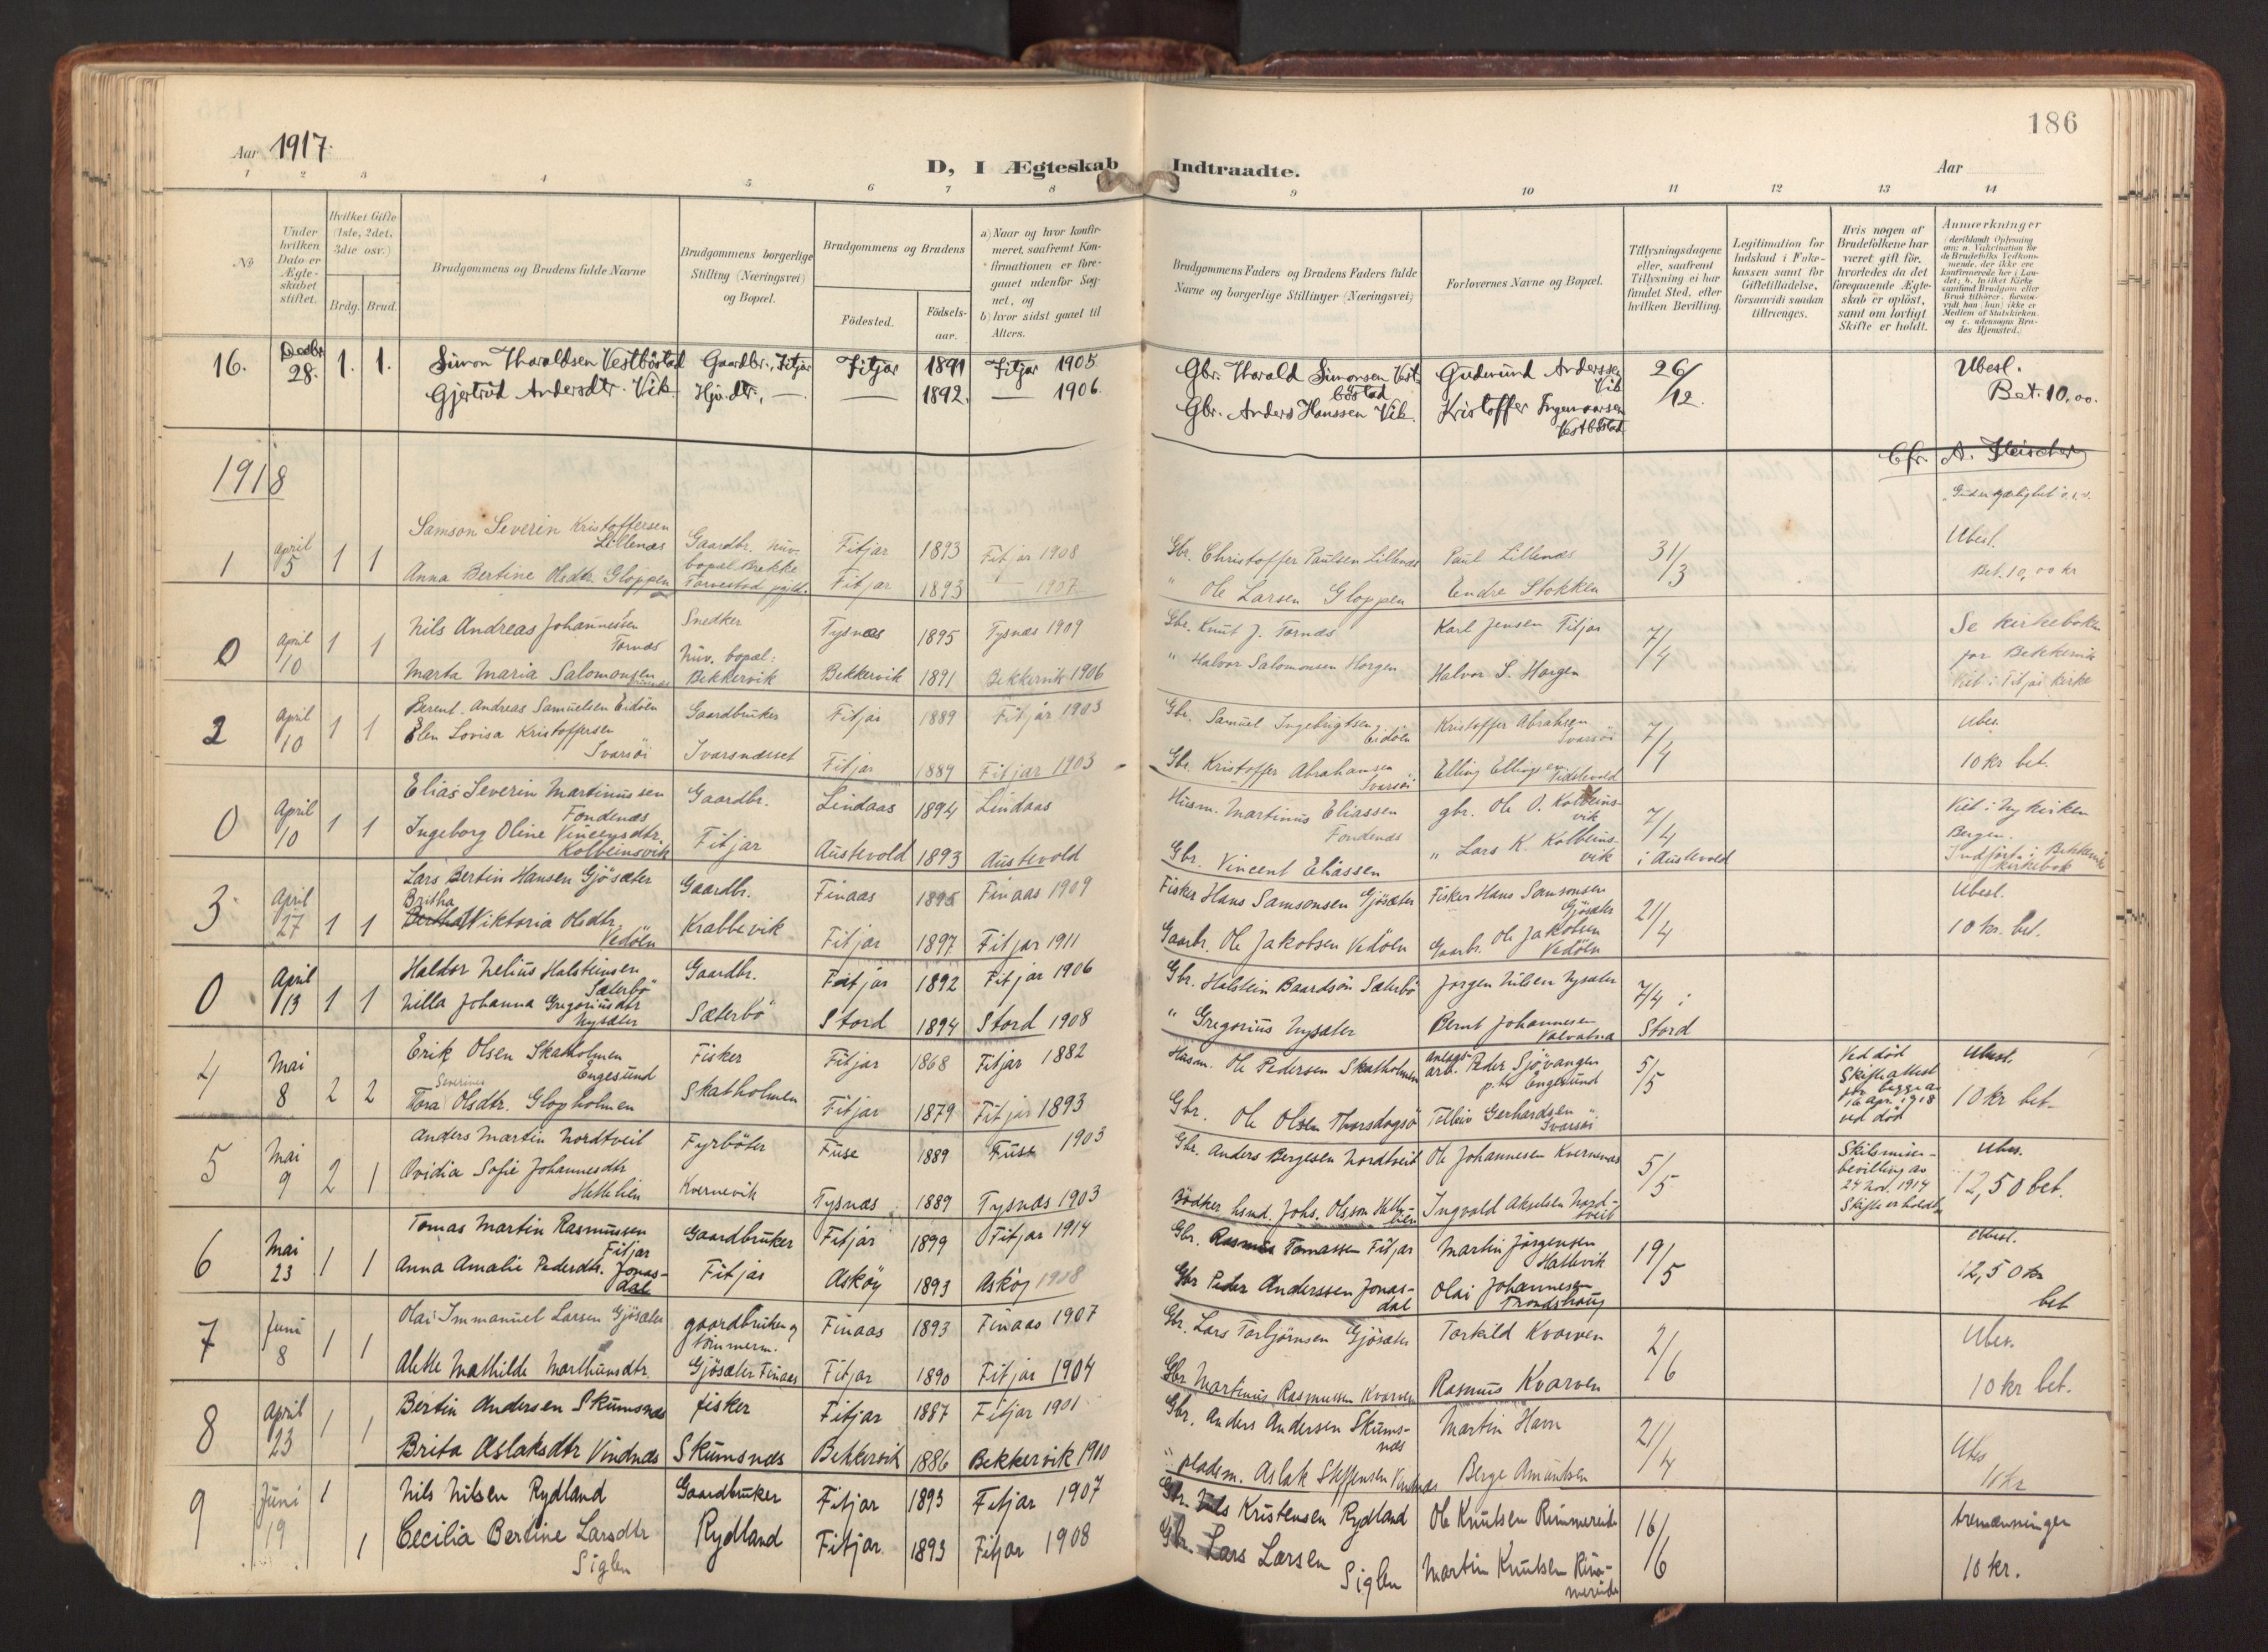 186
Aar 1917.
D, I Ægteskab Indtraadte.
Aar
1 2 3 4 5 6 7 8 9 10 11 12 13 14
No.
Under hvilken Dato er Ægteskabet stiftet.
Hvilket Gifte (1ste, 2det, 3die osv.)
Brdg. Brud.
Brudgommens og Brudens fulde Navne
Brudgommens borgerlige Stilling (Næringsvei) og Bopæl.
Brudgommens og Brudens
Födested.
Födselsaar.
a) Naar og hvor konfirmeret, saafremt Konfirmationen er foregaaet udenfor Sognet, og
b) hvor sidst gaaet til Alters.
Brudgommens Faders og Brudens Faders fulde Navne og borgerlige Stillinger (Næringsvei)
Forlovernes Navne og Bopæl.
Tillysningsdagene eller, saafremt Tillysning ei har fundet Sted, efter hvilken Bevilling.
Legitimation for Indskud i Enkekassen samt for Giftetilladelse, forsaavidt saadan tiltrænges.
Hvis nogen af Brudefolkene har været gift för, hvorledes da det foregaaende Ægteskab er oplöst, samt om lovligt Skifte er holdt.
Anmærkninger
16. Decbr 28. 1. 1. Simon Haraldsen Vestböstad Gaardbr., Fitjar Fitjar 1891 Fitjar 1905 Gbr. Harald Simonsen Vestböstad Gudmund Anderssen Vik 26/12. Ubesl.
Gjertrud Andersdtr. Vik. Hjv. dtr., — — 1892. — 1906. Gbr. Anders Hanssen Vik. Kristoffer Ingemarsen Vestböstad Bet. 10,00.
Cfr. A. Fleischer
1918
1 April 5 1 1 Samson Severin Kristoffersen Lillenæs Gaardbr. nuv. bopæl Brekke Fitjar 1893 Fitjar 1908 Gbr. Christoffer Paulsen Lillenæs Paul Lillenæs 31/3 Ubesl.
Anna Bertine Olsdtr. Gloppen Torvestad pgjld. Fitjar 1893 — 1907 " Ole Larsen Gloppen Endre Stokken Bet. 10,00 kr
0 April 10 1 1 Nils Andreas Johannessen Tornæs Snedker Tysnæs 1895 Tysnæs 1909 Gbr. Knut J. Tornæs Karl Jensen Fitjar 7/4 Se kirkeboken
Marta Maria Salomonsen nuv. bopæl: Bekkervik Bekkervik 1891 Bekkervik 1906 " Halvor Salomonsen Horgen Halvor S. Horgen for Bekkervik
Viet i Fitjar kirke
2 April 10 1 1 Berent Andreas Samuelsen Eidöen Gaardbruker Fitjar 1889 Fitjar 1903 Gbr. Samuel Ingebrigtsen Eidöen Kristoffer Abrahsen Ivarsöi 7/4 Ubes.
Elen Lovisa Kristoffersen Ivarsöi Ivarsnæsset Fitjar 1889 Fitjar 1903 Gbr. Kristoffer Abrahamsen Ivarsöi Elling Ellingsen 10 kr bet.
0 April 10 1 1 Elias Severin Martinussen Fondenæs Gaardbr. Lindaas 1894 Lindaas Husm. Martinus Eliassen Fondenæs gbr. Ole O. Kolbeinsvik 7/4 Viet i Nykirken
Ingeborg Oline Vincensdtr. Kolbeinsvik Fitjar Austevold 1893 Austevold Gbr. Vincent Eliassen " Lars K. Kolbeinsvik i Austevold Bergen.
Indfört i Bekkervik kirkebok
3 April 27 1 1 Lars Bertin Hansen Gjösæter Gaardbr. Finaas 1895 Finaas 1909 Fisker Hans Samsonsen Gjösæter Fisker Hans Samsonsen Gjösæter 21/4 Ubesl.
Britha Viktoria Olsdtr. Vedöen Krabbevik Fitjar 1897 Fitjar 1911 Gaarbr. Ole Jakobsen Vedöen Gaarbr. Ole Jakobsen Vedöen 10 kr. bet.
0 April 13 1 1 Haldor Nelius Halsteinsen Sæterbö Gaardbr. Fitjar 1892 Fitjar 1906 Gbr. Halstein Baardsön Sæterbö Jörgen Nilsen Nysæter 7/4 i
Nilla Johanna Gregoriusdtr Nysæter Sæterbö Stord 1894 Stord 1908 " Gregorius Nysæter Bernt Johannesen Valvatna Stord
4 Mai 8 2 2 Erik Olsen Skatholmen Engesund Fisker Fitjar 1868 Fitjar 1882 Husm. Ole Pedersen Skatholmen Anlægsarb. Peder Sjövangen p.t. Engesund 5/5 Ved död Skifteattest for begge av 16 apr. 1918 ved död Ubesl.
Tora Severine Olsdtr. Glopholmen Skatholmen Fitjar 1879 Fitjar 1893 Gbr. Ole Olsen Thorsdagsö Tolleiv Gerhardsen Ivarsöi 10 kr bet.
5 Mai 9 2 1 Anders Martin Nordtveit Fyrböter Fuse 1889 Fuse 1903 Gbr. Anders Bergesen Nordtveit Ole Johannesen Kvernenæs 5/5 Skilsmissebevilling av 24 nov. 1914 Skifte er holdt Ubes.
Ovidia Sofie Johannesdtr Hettelien Kvernevik Tysnæs 1889 Tysnæs 1903 Bödker hsmd. Johs. Olsson Hettelien Ingvald Akselsen Nordtveit 12,50 bet.
6 Mai 23 1 1 Tomas Martin Rasmussen Fitjar Gaardbruker Fitjar 1899 Fitjar 1914 Gbr. Rasmus Tomassen Fitjar Martin Jörgensen Hallevik 19/5 Ubesl.
Anna Amalie Pedersdtr. Jonasdal Fitjar Asköy 1893 Asköy 1908 Gbr Peder Anderssen Jonasdal Olai Johannesen Trondshaug 12,50 kr bet
7 Juni 8 1 1 Olai Immanuel Larsen Gjösæter gaardbruker og tömmerm. Finaas 1893 Finaas 1907 Gbr. Lars Torbjörnsen Gjösæter Torkild Kvarven 2/6 Ubes.
Alette Mathilde Marthinusdtr Gjösæter Finaas Fitjar 1890 Fitjar 1904 Gbr Martinus Rasmussen Kvarven Rasmus Kvarven 10 kr bet.
8 April 23 1 1 Bertin Andersen Skumsnæs fisker Fitjar 1887 Fitjar 1901 Gbr. Anders Andersen Skumsnæs Martin Havn 21/4 Ubes
Brita Aslaksdtr Vindnæs Skumsnæs Bekkervik 1886 Bekkervik 1900 " pladsm. Aslak Steffensen Vindnæs Berge Amundsen 10 kr
9 Juni 19 1 Nils Nilsen Rydland Gaardbruker Fitjar 1893 Fitjar 1907 Gbr. Nils Kristensen Rydland Ole Knutsen Rimmereide 16/6 tremænninger
1 Cecilia Bertine Larsdtr Siglen Rydland Fitjar 1893 Fitjar 1908 Gbr. Lars Larsen Siglen Martin Knutsen Rimmereide 10 kr.